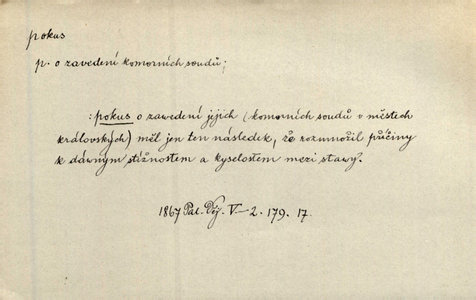 pokus
p. o zavedení komorních soudů;
: pokus o zavedení jejich (komorních soudů v městech
královských) měl jen ten následek, že rozmnožil příčiny
k dávným stížnostem a kyselostem mezi stavy?
1867 Pal. Děj. V–2. 179. 17.